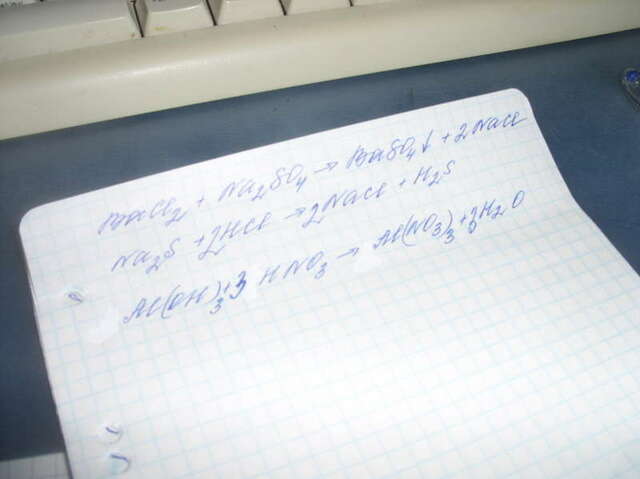 BaCl₂ + Na₂SO₄ → BaSO₄↓ + 2NaCl
Na₂S + 2HCl → 2NaCl + H₂S
Al(OH)₃ + 3HNO₃ → Al(NO₃)₃ + 3H₂O